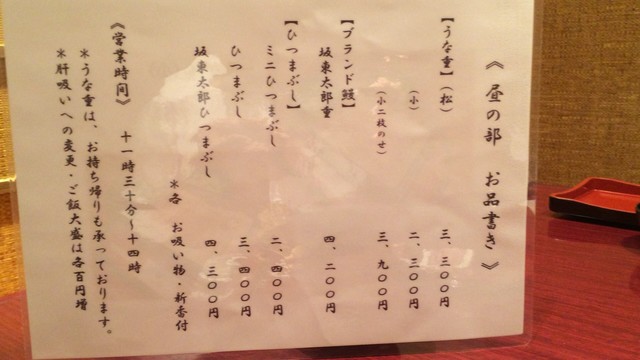 《昼の部 お品書き》
【うな重】(松) 三、三〇〇円
(小) 二、三〇〇円
(小二枚のせ) 三、九〇〇円
【ブランド鰻】
坂東太郎重 四、二〇〇円
【ひつまぶし】
ミニひつまぶし 二、四〇〇円
ひつまぶし 三、四〇〇円
坂東太郎ひつまぶし 四、三〇〇円
*各 お吸い物・新香付
《営業時間》 十一時三十分~十四時
*うな重は、お持ち帰りも承っております。
*肝吸いへの変更・ご飯大盛は各百円増